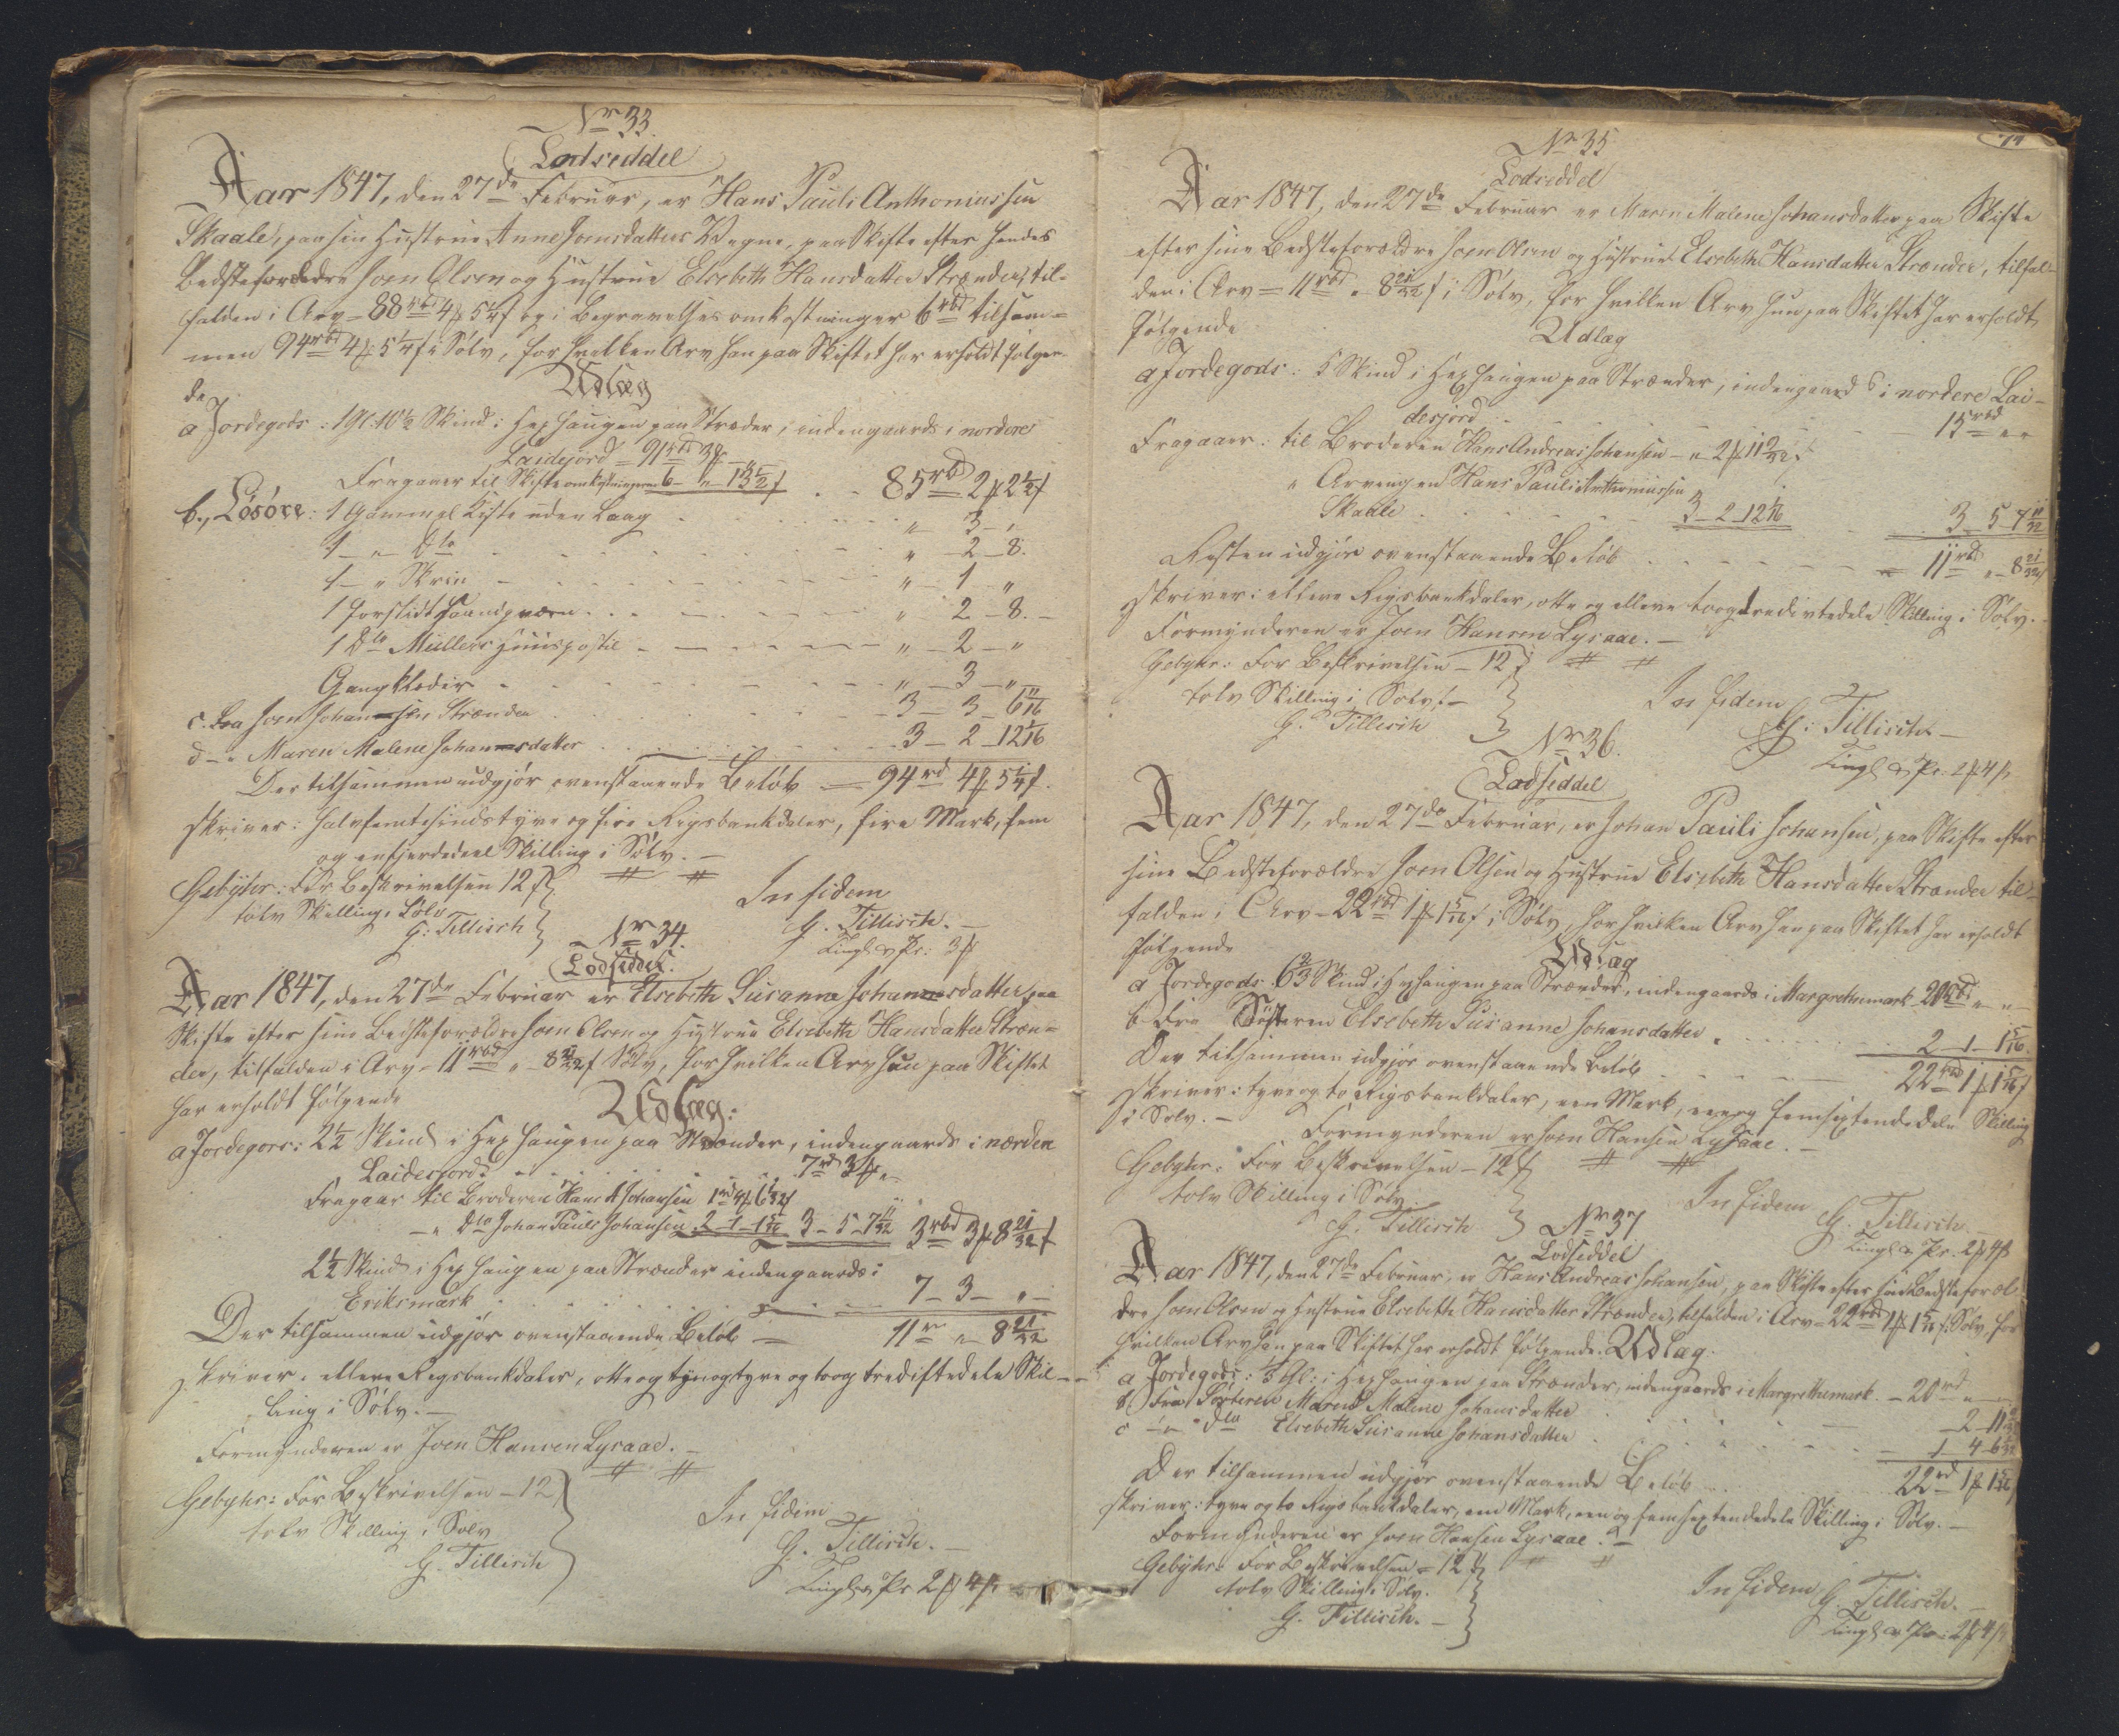 No 33.
Lodseddel
Aar 1847, den 27de Februar, er Hans Pauli Anthoniussen
Skaale, paa sin Hustrue Anne Joensdatters Vegne, paa Skifte efter hendes
Bedsteforældre Joen Olsen og Hustrue Elsebeth Hansdatter Strænder, til-
falden i Arv = 88 rbd 4 ꝟ 5¼ f og i Begravelses omkostninger 6 rbd tilsam-
men 94 rbd 4 ꝟ 5¼ f i Sølv, for hvilken Arv han paa Skiftet har erholdt følgen-
de
Udlæg
a Jordegods: 1 Gl. 10½ Skind i Hexhaugen paa Strænder, indengaards i nordere
Laidejord = 91 rbd 3 ꝟ "
Fragaaer til Skifte omkostningerne 6 - " - 13½ f . . 85 rbd 2 ꝟ 2½ f
b, Løsøre: 1 Gammel Kiste uden Laag . . . " - 3 - "
1 - " - Dto . . . " - 2 - 8.
1 - " Skrin - - - " - 1 - "
1 forslidt Haandqværn . . . " 2 - 8. -
1 Dto Müllers Huuspostil - - - " - 2 - "
Gangklæder - - - " - 3 - "
c. Fra Joen Johansen Strænder . . . 3 - 3 - 6 11/16
d - " Maren Malene Johansdatter . . . 3 - 2 - 12 1/16
Der tilsammen udgjør ovenstaaende Beløb — 94 rd 4 ꝟ 5¼ f.
skriver: halvfemtesindstyve og fire Rigsbankdaler, fire Mark, fem
og en fjerdedeel Skilling i Sølv. —
Gebyhr: For Beskrivelsen 12 f
tolv Skilling i Sølv
G: Tillisch
In fidem
G. Tillisch. —
Tingl. Pr: 3 f
No 34.
Lodseddel.
Aar 1847, den 27de Februar er Elsebeth Susanne Johansdatter, paa
Skifte efter sine Bedsteforældre Joen Olsen og Hustrue Elsebeth Hansdatter Stræn-
der, tilfalden i Arv - 11 rbd " - 8 21/32 f Sølv, for hvilken Arv hun paa Skiftet
har erholdt følgende
Udlæg:
a Jordegods: 2½ Skind i Hexhaugen paa Strænder, indengaards i nordere
Laidesjord: . . . 7 rd 3 ꝟ "
Fragaaer til Broderen Hans A Johansen 1 rd 4 ꝟ 6 1/32 f
- " Dto Johan Pauli Johansen 2 - 1 - 1 5/16 3 - 5 - 7 11/32 3 rbd 3 ꝟ 8 21/32 f
2½ Skind i Hexhaugen paa Strænder indengaards i
Eriksmark . . . 7 - 3 - " -
Der tilsammen udgjør ovenstaaende Beløb — 11 r " - 8 21/32
skriver: elleve Rigsbankdaler, otte og tyve og toog tredivtedele Skil-
ling i Sølv. —
Formynderen er Joen Hansen Lysaae. —
Gebyhr: For Beskrivelsen - 12
tolv Skilling i Sølv
G. Tillisch
In fidem
G. Tillisch. —
Tingl. Pr 2 ꝟ 4 f
No 35
Lodseddel
Aar 1847, den 27de Februar er Maren Malene Johansdatter paa Skifte
efter sine Bedsteforældre Joen Olsen og Hustrue Elsebeth Hansdatter Strænder, tilfal-
den i Arv = 11 rbd " 8 21/32 f i Sølv, for hvilken Arv hun paa Skiftet har erholdt
følgende
Udlæg
a Jordegods: 5 Skind i Hexhaugen paa Strænder, indengaards i nordere Lai-
desjord . . . 15 rbd " "
Fragaaer: til Broderen Hans Andreas Johansen - " 2 ꝟ 11 9/32
" Arvingen Hans Pauli Anthoniussen
Skaale . . . 3 - 2 - 12 1/16 . . 3 - 5 - 7 11/32
Resten udgjør ovenstaaende Beløb . . . 11 rbd " - 8 21/32 f
skriver: elleve Rigsbankdaler, otte og elleve toogtredivtedele Skilling i Sølv. -
Formynderen er Joen Hansen Lysaae. —
Gebyhr: For Beskrivelsen - 12 f
tolv Skilling i Sølv. -
G. Tillisch
In fidem
G: Tillisch. —
Tingl. Pr. 2 ꝟ 4 f
No 36.
Lodseddel
Aar 1847, den 27de Februar, er Johan Pauli Johansen, paa Skifte efter
sine Bedsteforældre Joen Olsen og Hustrue Elsebeth Hansdatter Strænder til-
falden i Arv - 22 rbd 1 ꝟ 1 5/16 f i Sølv, for hvilken Arv han paa Skiftet har erholdt
følgende
Udlæg
a Jordegods: 6⅔ Skind i Hexhaugen paa Strænder, indengaards i Margrethemark 20 rbd " "
b Fra Søsteren Elsebeth Susanne Johansdatter . . . 2 - 1 - 1 5/16
Der tilsammen udgjør ovenstaaende Beløb . . . 22 rbd 1 ꝟ 1 5/16 f
skriver: tyve og to Rigsbankdaler, een Mark, een og femsextendedele Skilling
i Sølv. —
Formynderen er Joen Hansen Lysaae. —
Gebyhr: For Beskrivelsen - 12 f
tolv Skilling i Sølv.
G. Tillisch
In fidem
G. Tillisch
Tingl. Pr. 2 ꝟ 4 f
No 37
Lodseddel
Aar 1847, den 27de Februar, er Hans Andreas Johansen, paa Skifte efter sine Bedsteforæl-
dre Joen Olsen og Hustrue Elsebeth Hansdatter Strænder, tilfalden i Arv = 22 rbd 1 ꝟ 1 5/16 f Sølv, for
hvilken Arv han paa Skiftet har erholdt følgende. Udlæg.
a Jordegods: ⅓ Gl: i Hexhaugen paa Strænder, indengaards i Margrethemark. - 20 rd " -
b) Fra Søsteren Maren Malene Johansdatter . . . - 2 - 11 9/32
c - " - Dto Elsebeth Susanne Johansdatter . . . 1 4 6 1/32
Der tilsammen udgjør ovenstaaende Beløb . . . 22 rd 1 ꝟ 1 5/16 f
skriver: tyve og to Rigsbankdaler, een Mark, een og femsextendedele Skilling i Sølv. —
Formynderen er Joen Hansen Lysaae. —
Gebyhr: For Beskrivelsen = 12 f
tolv Skilling i Sølv.
G. Tillisch. —
In fidem
G. Tillisch. —
Tingl. Pr: 2 ꝟ 4 f